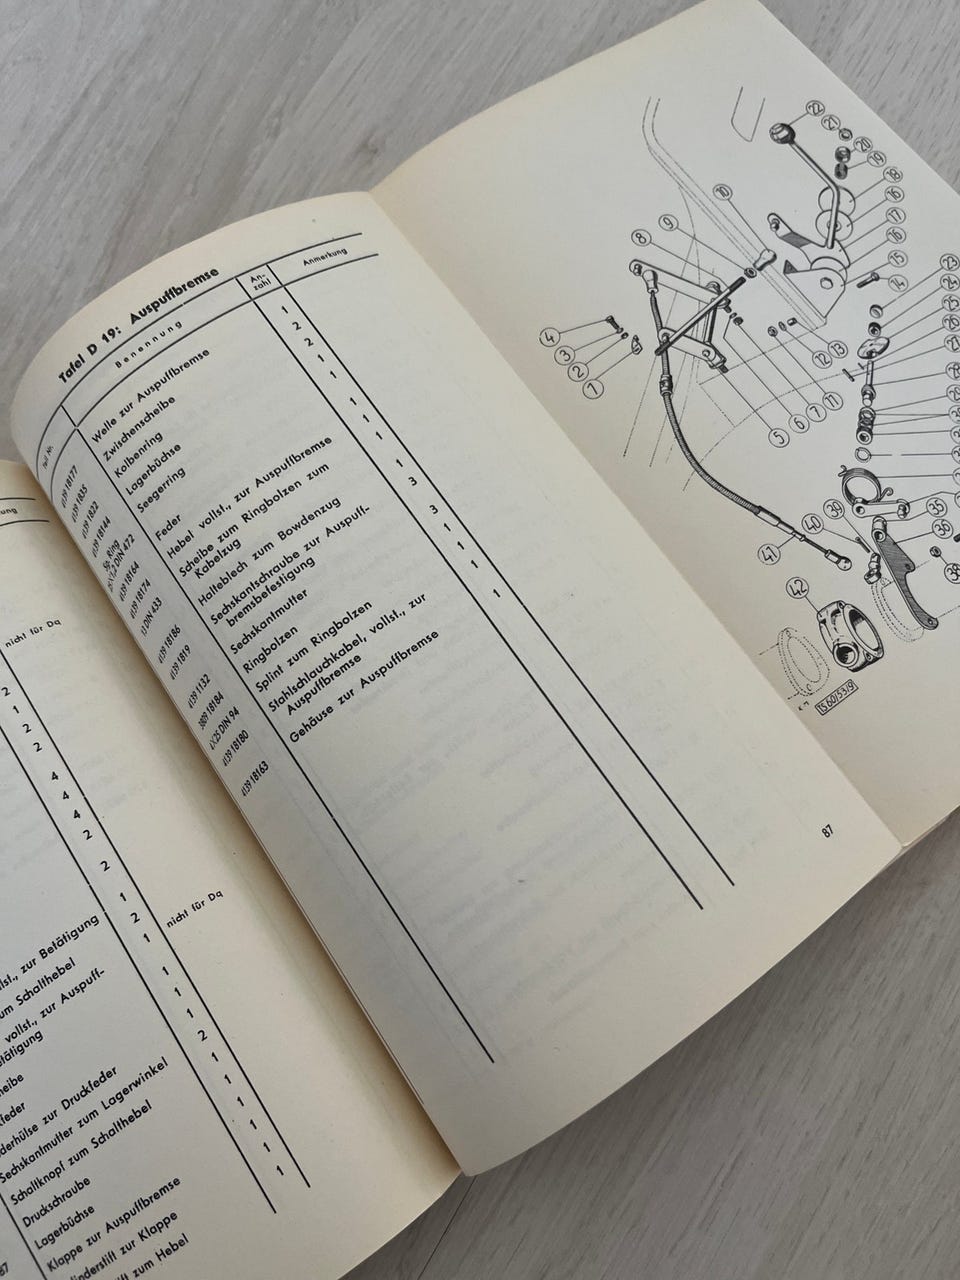 nicht für Dq
2
1
2
2
4
4
4
2
2
1
2
nicht für Dq
1
1
1
1
2
1
1
1
1
1
1
zur Betätigung
zum Schalthebel
vollst., zur Auspuff-
Federhülse zur Druckfeder
Sechskantmutter zum Lagerwinkel
Schaltknopf zum Schalthebel
Druckschraube
Lagerbüchse
Klappe zur Auspuffbremse
Zylinderstift zur Klappe
zum Hebel
Tafel D 19: Auspuffbremse
Teil Nr.
Benennung
An-
zahl
Anmerkung
4139 18177 Welle zur Auspuffbremse 1
4139 1835 Zwischenscheibe 2
4139 1822 Kolbenring 2
4139 18144 Lagerbüchse 1
Sg. Ring Seegerring 1
25X1,2 DIN 472
4139 18164 Feder 1
4139 18174 Hebel vollst., zur Auspuffbremse 1
13 DIN 433 Scheibe zum Ringbolzen zum 1
Kabelzug
4139 18186 Halteblech zum Bowdenzug 1
4139 1819 Sechskantschraube zur Auspuff- 3
bremsbefestigung
Sechskantmutter 3
4139 1132 Ringbolzen 1
3809 18184 Splint zum Ringbolzen 1
4X25 DIN 94 Stahlschlauchkabel, vollst., zur 1
Auspuffbremse
4139 18180 Gehäuse zur Auspuffbremse 1
4139 18163
87
22
21
20
19
18
16
17
16
15
14
10
9
8
4
3
2
1
5
6
7
11
12
13
23
24
35
36
38
39
40
41
42
TS 60/53/9